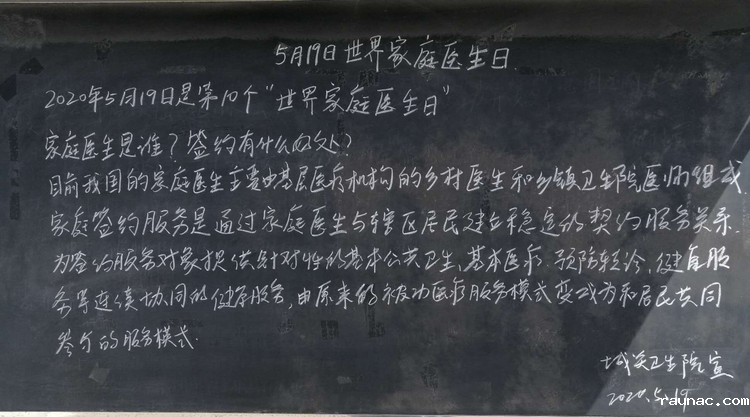 5月19日世界家庭医生日.
2020年5月19日是第10个"世界家庭医生日"
家庭医生是谁?签约有什么好处?
目前我国的家庭医生主要由基层医疗机构的乡村医生和乡镇卫生院医师组成
家庭签约服务是通过家庭医生与辖区居民建立稳定的契约服务关系.
为签约服务对象提供针对性的基本公共卫生、基本医疗、预防转诊、健身服
务等连续协同的健康服务,由原来的被动医疗服务模式变成为和居民共同
参与的服务模式.
城关卫生院宣
2020.5.19
raynac.com